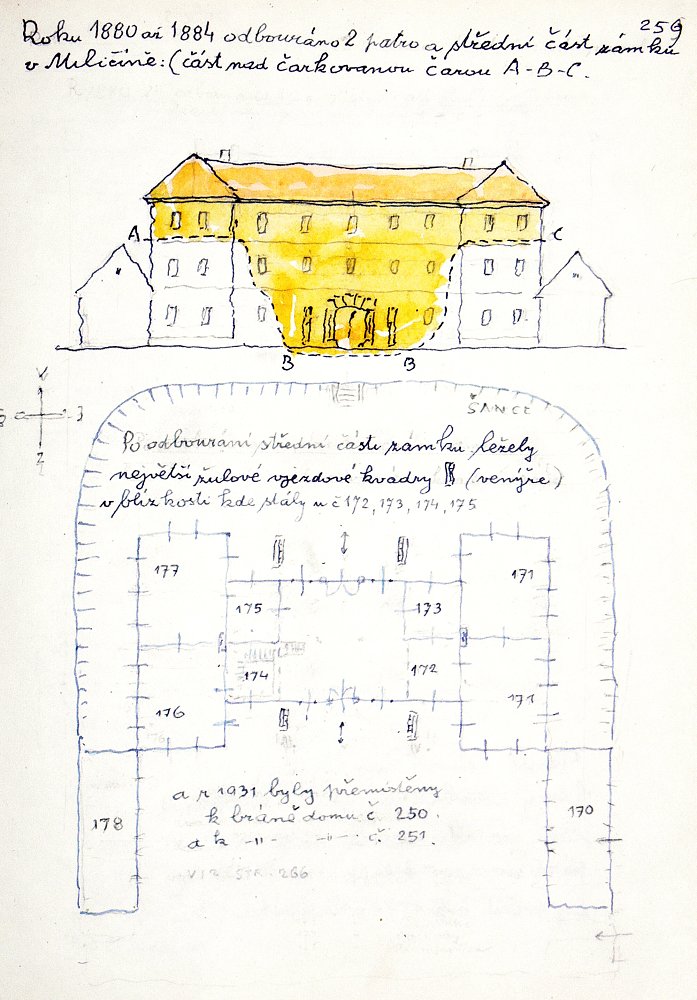 259
Roku 1880 až 1884 odbouráno 2 patro a střední část zámku
v Miličíně: (část nad čárkovanou čarou A-B-C.
A
C
B
B
ŠANCE
Po odbourání střední části zámku ležely
největší žulové vjezdové kvádry (venýře)
v blízkosti kde stály u č 172, 173, 174, 175
177
171
175
173
174
172
176
171
a r 1931 byly přemistěny
k bráně domu č. 250.
a k -"- -"- č. 251.
178
170
VIZ STR. 266